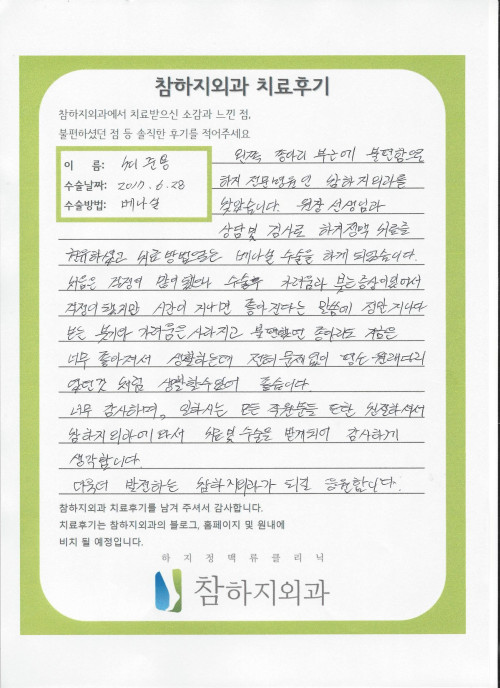 참하지외과 치료후기
참하지외과에서 치료받으신 소감과 느낀 점,
불편하셨던 점 등 솔직한 후기를 적어주세요
이 름: 준용
수술날짜: 2017. 6. 28
수술방법: 베나실
왼쪽 종아리 부근에 불편함으로
하지 전문병원인 참하지외과를
찾았습니다. 원장 선생님과
상담 및 검사로 하지정맥 치료를
하고 치료 방법으로는 베나실 수술을 하게 되었습니다.
처음은 걱정이 많이 했으나 수술후 가려움과 붓는증상이 있어서
걱정이 했지만 시간이 지나면 좋아진다는 말씀에 정말 지나다
보는 붓기와 가려움은 사라지고 불편했던 종아리도 지금은
너무 좋아져서 생활하는데 전혀 문제없이 원래다리
였던것 처럼 생활할수있어 좋습니다.
너무 감사하며, 일하시는 모든 직원분들 또한 친절하셔서
참하지외과에 와서 치료 및 수술을 받게되어 감사하게
생각합니다.
더욱더 발전하는 참하지외과가 되길 응원합니다.
참하지외과 치료후기를 남겨 주셔서 감사합니다.
치료후기는 참하지외과의 블로그, 홈페이지 및 원내에
비치 될 예정입니다.
하지정맥류클리닉
참하지외과